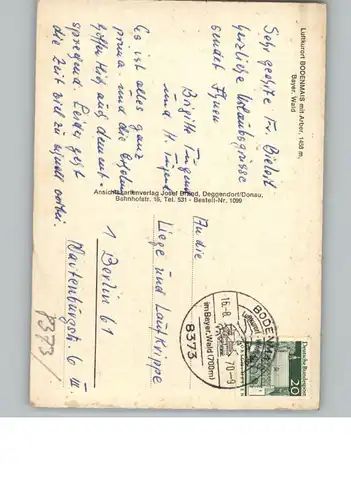 Luftkurort BODENMAIS mit Arber, 1458 m,
Bayer. Wald
Sehr geehrte Fr. Bielert
herzliche Urlaubsgrüsse
sendet Ihnen
Brigitte
und H.
Es ist alles ganz
prima und die
hoffentlich auch dement-
sprechend. Leider geht
die Zeit viel zu schnell vorbei.
Ansichtskartenverlag Josef Brand, Deggendorf/Donau,
Bahnhofstr. 16, Tel. 531 - Bestell-Nr. 1099
An die
Liege und Laufkrippe
1 Berlin 61
Wartenburgstr. 6 III
8373/
BODENMAIS
Luftkurort
16.-8.
70-9
im Bayer. Wald (700m)
8373
Deutsche Bundespost
20